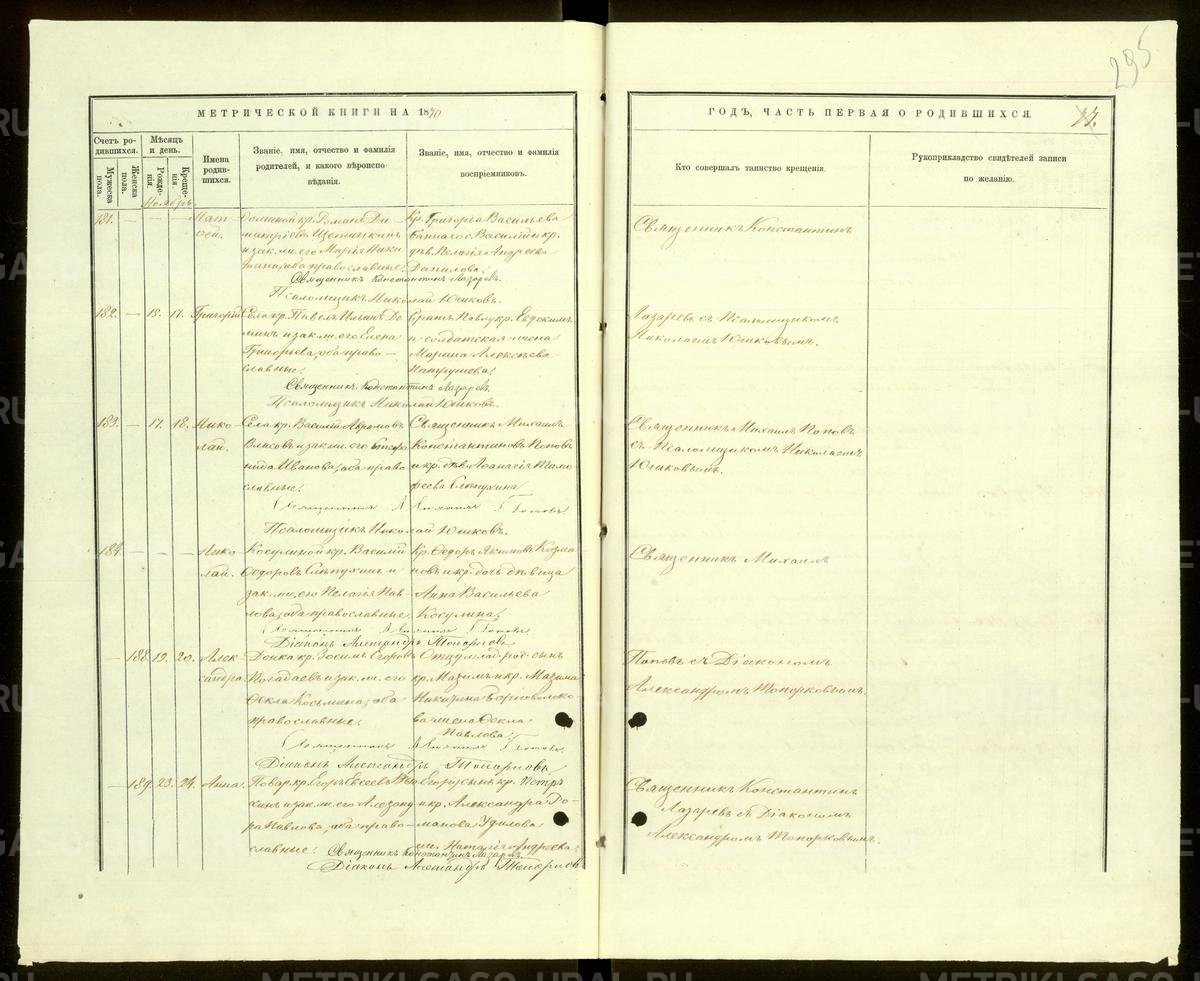 295
МЕТРИЧЕСКОЙ КНИГИ НА 1870
ГОДЪ, ЧАСТЬ ПЕРВАЯ О РОДИВШИХСЯ.
Счетъ родившихся.
Мужеска пола.
Женска пола.
Мѣсяцъ и день.
Рожденія.
Крещенія.
Имена родившихся.
Званіе, имя, отчество и фамилія
родителей, и какого вѣроисповѣданія.
Званіе, имя, отчество и фамилія
воспріемниковъ.
Кто совершалъ таинство крещенія.
Рукоприкладство свидѣтелей записи
по желанію.
Ноябрь
181. — — — Матѳей.
кр. Романъ Димитріевъ Щетинкинъ
и зак. ж. его Марія Никитина, оба православные.
Кр. Григорья Васильева
Василій и кр.
дѣв. Пелагія Андреева
Данилова.
Священникъ Константинъ Лазаревъ.
Псаломщикъ Николай Юшковъ.
Священникъ Константинъ
182. — 15. 17. Григорій
Села кр. Павелъ Ильинъ
и зак. ж. его Елена
Григорьева, оба православные.
Братъ Павлу кр. Евдокимъ
и солдатская жена
Марина Алексѣева
Священникъ Константинъ Лазаревъ
Псаломщикъ Николай Юшковъ.
Лазаревъ съ Псаломщикомъ
Николаемъ Юшковымъ.
183. — 17. 18. Николай.
Села кр. Василій Абрамовъ
Власовъ и зак. ж. его
Иванова, оба православные.
Священникъ Михаилъ
Константиновъ Поповъ
и кр. дѣв. Аѳанасія Тимофеева Слѣпухина
Священникъ Михаилъ Поповъ
Псаломщикъ Николай Юшковъ.
Священникъ Михаилъ Поповъ
съ Псаломщикомъ Николаемъ
Юшковымъ.
184. — — — Николай.
Косулиной кр. Василій
Ѳедоровъ Слѣпухинъ и
зак. ж. его Пелагія Павлова, оба православные.
Кр. Ѳедоръ Якимовъ Козмановъ и кр. дочь дѣвица
Анна Васильева
Косулина.
Священникъ Михаилъ Поповъ
Діаконъ Александръ Топорковъ
Священникъ Михаилъ
— 188. 19. 20. Александра
кр. Зосимъ Егоровъ
и зак. ж. его
Ѳекла Косьмина, оба
православные.
Отцу млад. род. сынъ
кр. Максимъ и кр. Максима
Никитина
жена Ѳекла
Павлова.
Священникъ Михаилъ Поповъ
Діаконъ Александръ Топорковъ
Поповъ съ Діакономъ
Александромъ Топорковымъ.
— 189. 23. 24. Анна.
кр. Егоръ Евсеевъ
и зак. ж. его Александра Павлова, оба православные.
Егору сынъ кр. Петръ
и кр. Александра Романова Уфилова
жен. Наталія Андреева.
Священникъ Константинъ Лазаревъ.
Діаконъ Александръ Топорковъ
Священникъ Константинъ
Лазаревъ съ Діакономъ
Александромъ Топорковымъ.
METRIKI.GASO-URAL.RU